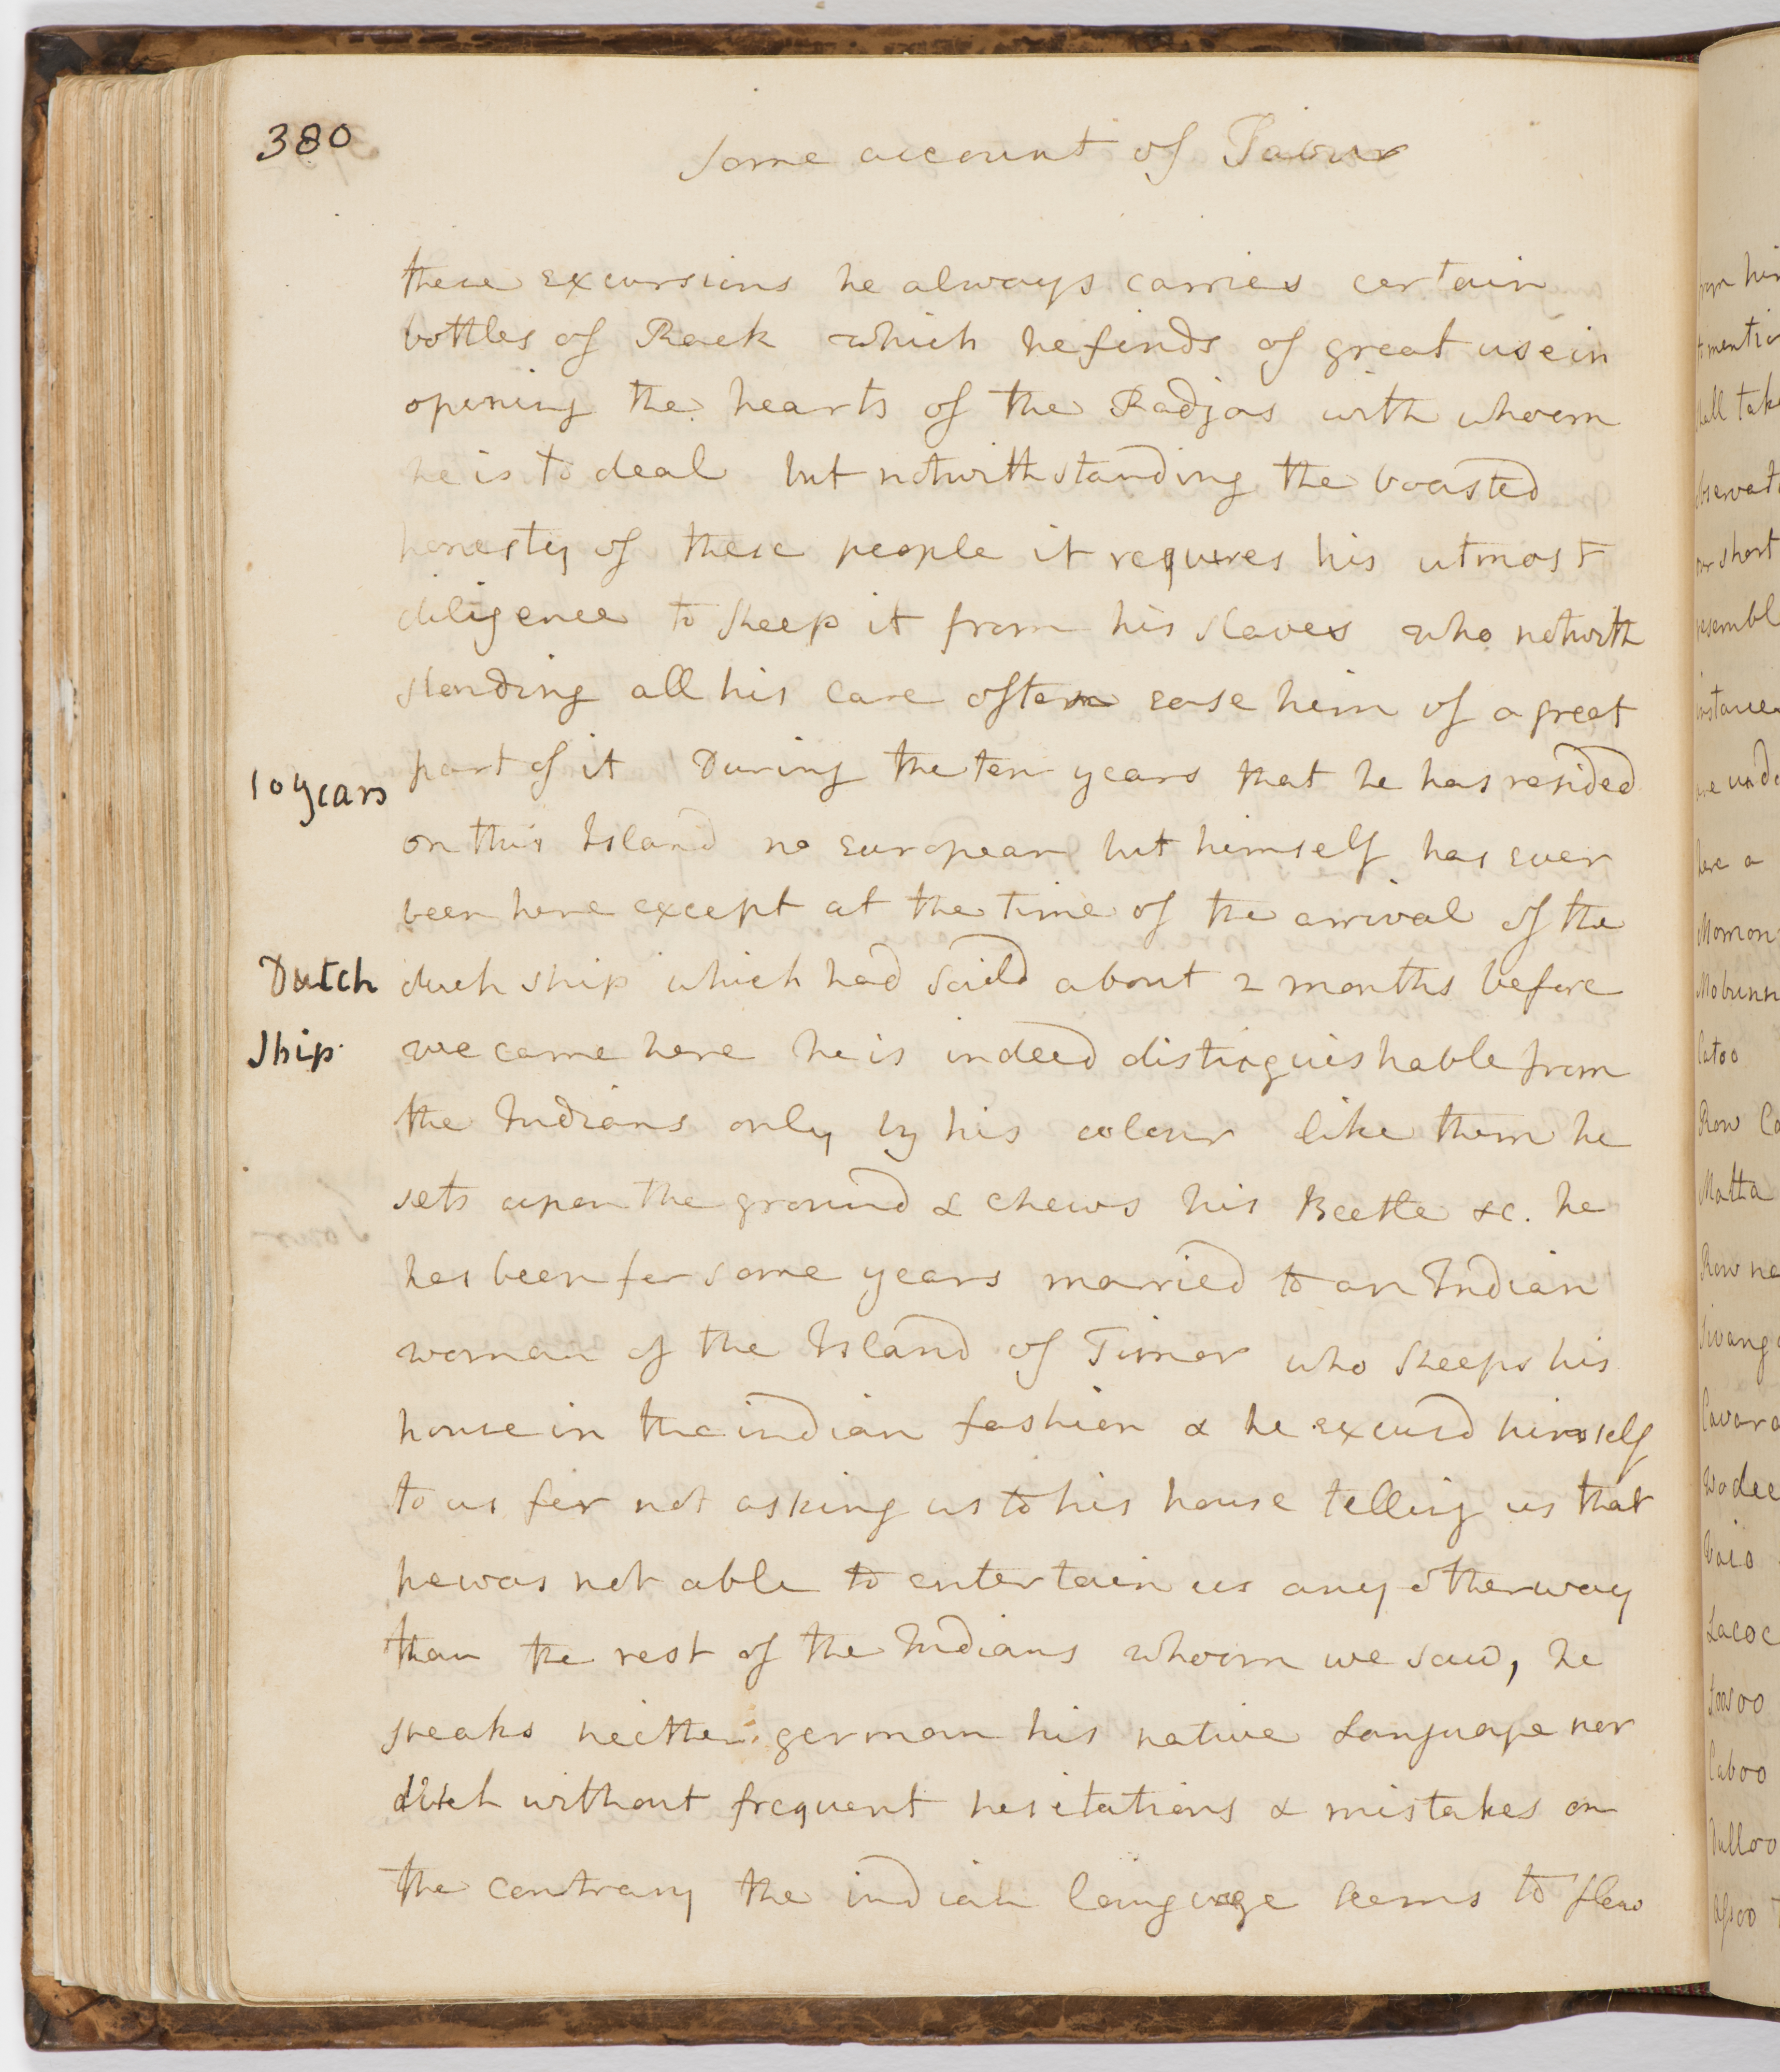 380
Some account of Savu
these excursions he always carries certain
bottles of Rack which he finds of great use in
opening the hearts of the Radjas with whoom
he is to deal but notwithstanding the boasted
honesty of these people it requires his utmost
diligence to keep it from his slaves who notwith
standing all his care often ease him of a great
10 years
part of it During the ten years that he has resided
on this Island no european but himself has ever
been here except at the time of the arrival of the
Dutch
duch ship which had saild about 2 months before
Ship
we came here he is indeed distinguishable from
the Indians only by his colour like them he
sets upon the ground & chews his Beetle &c. he
has been for some years married to an Indian
woman of the Island of Timor who keeps his
house in the indian fashion & he excusd himself
to us for not asking us to his house telling us that
he was not able to entertain us any other way
than the rest of the Indians whoom we saw, he
speaks neither german his native Language nor
dutch without frequent hesitations & mistakes on
the contrary the indian language seems to flow
from him
to mentio
shall take
observati
our short
resembl
instance
are unde
here a
Momon
Mobunn
Catoo
Row Ca
Matta
Row na
Swang
Cavara
Wodee
Vaio
Lacoc
Soosoo
Caboo
Dulloo